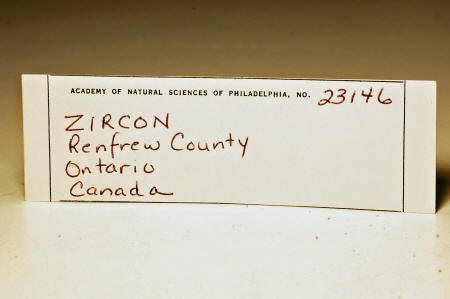 ACADEMY OF NATURAL SCIENCES OF PHILADELPHIA, NO. 23146
ZIRCON
Renfrew County
Ontario
Canada